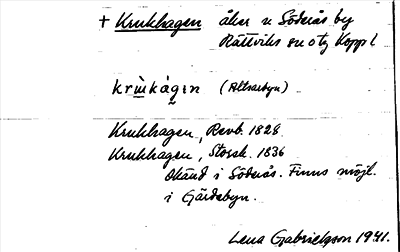 + Krukhagen åker u Söderås by
Rättviks sn otg Koppl
krùkágen (Altsarbyn)
Krukhagen, Revb. 1828
Krukhagen, Storsk. 1836
Okänd i Söderås. Finns möjl.
i Gärdebyn.
Lena Gabrielsson 1941.